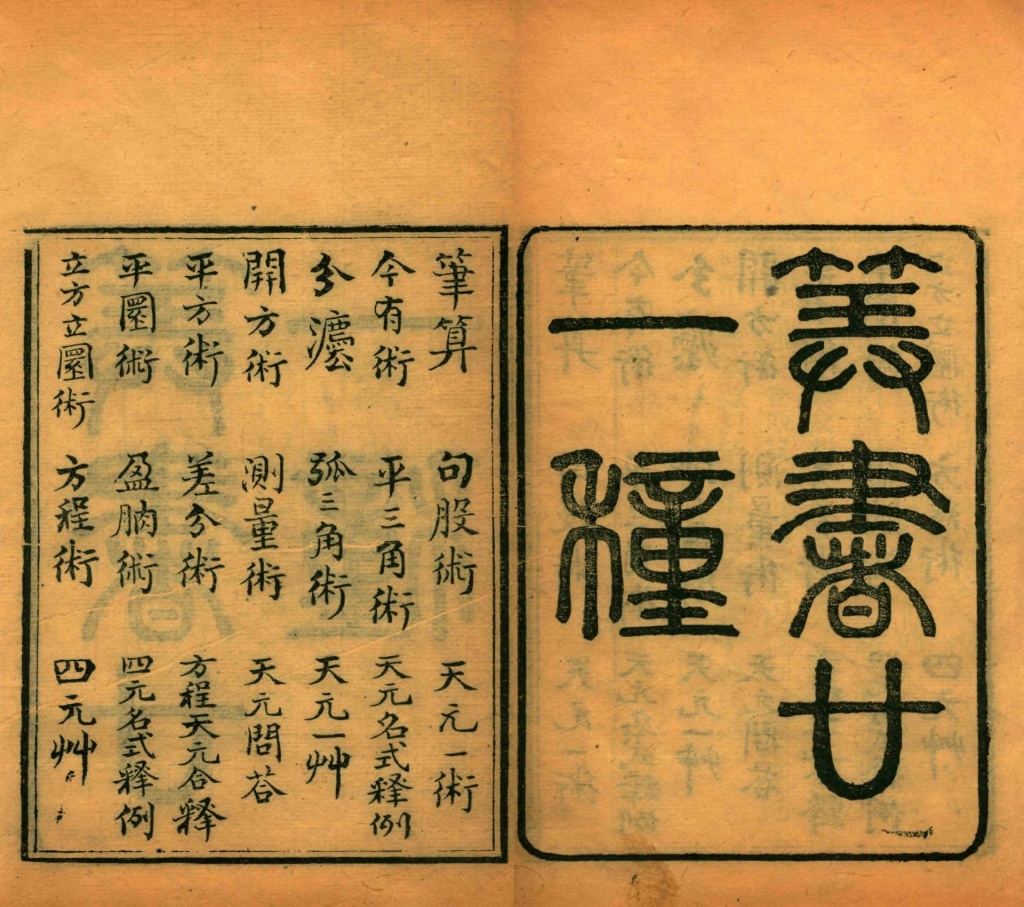 筭書廿
一種
筆算 句股術 天元一術
今有術 平三角術 天元名式釋例
分灋 弧三角術 天元一艸
開方術 測量術 天元問荅
平方術 差分術 方程天元合釋
平圜術 盈朒術 四元名式釋例
立方立圜術 方程術 四元艸